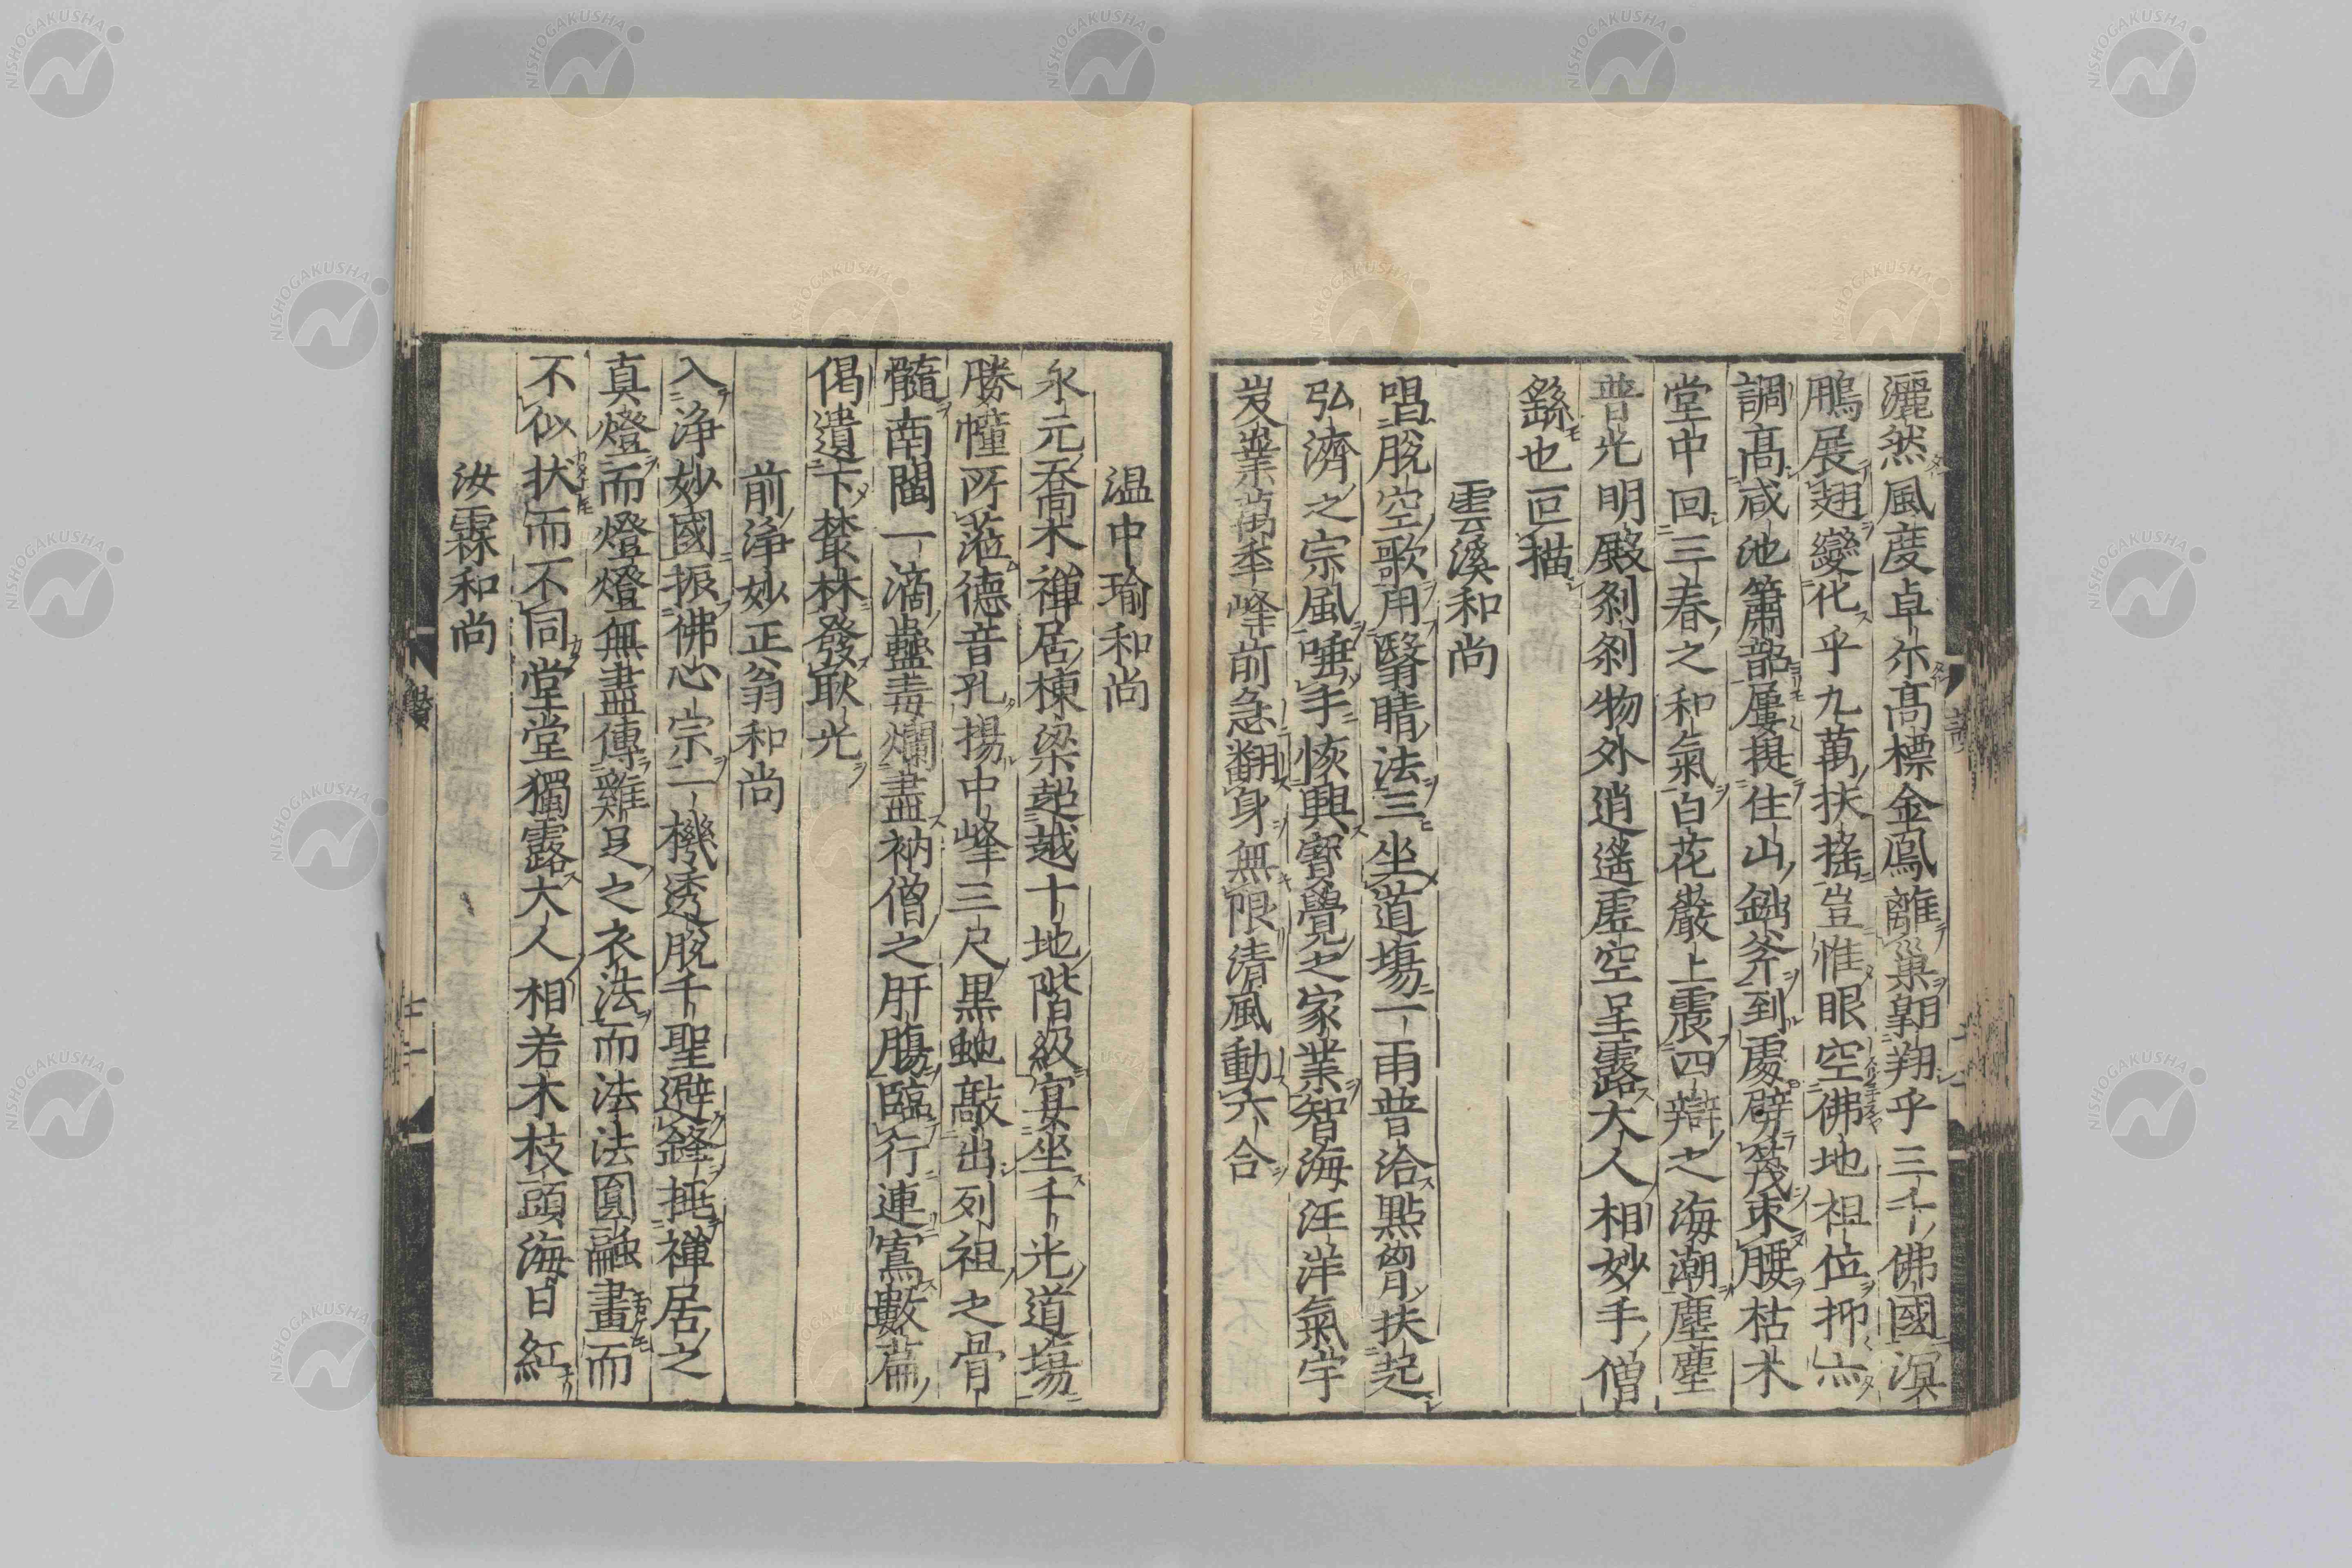 灑然風度卓尓髙標金鳳離巢翺翔乎三千佛國溟
鵬展翅變化乎九萬扶搖豈惟眼空佛地祖位抑亦
調髙咸池簫韶屢提住山鈯斧到處劈篾束腰枯木
堂中回三春之和氣百花巖上震四辯之海潮塵塵
普光明殿剎剎物外逍遙虛空呈露大人相妙手僧
繇也叵描
雲溪和尚
唱脫空歌用瞖睛法三坐道塲一雨普洽點胷扶起
弘濟之宗風唾手恢興寳覺之家業智海汪洋氣宇
岌嶪萬年峰前急翻身無限清風動六合
温中瑜和尚
永元喬木禪居棟梁超越十地階級宴坐千光道塲
勝幢所蒞德音孔揚中峰三尺黒虵敲出列祖之骨
髓南閩一滴蠱毒爛盡衲僧之肝膓臨行連寫數篇
偈遺下叢林發耿光
前浄妙正翁和尚
入浄妙國振佛心宗一機透脫千聖避鋒挿禪居之
真燈而燈燈無盡傳雞足之衣法而法法圓融畫而
不似狀而不同堂堂獨露大人相若木枝頭海日紅
汝霖和尚